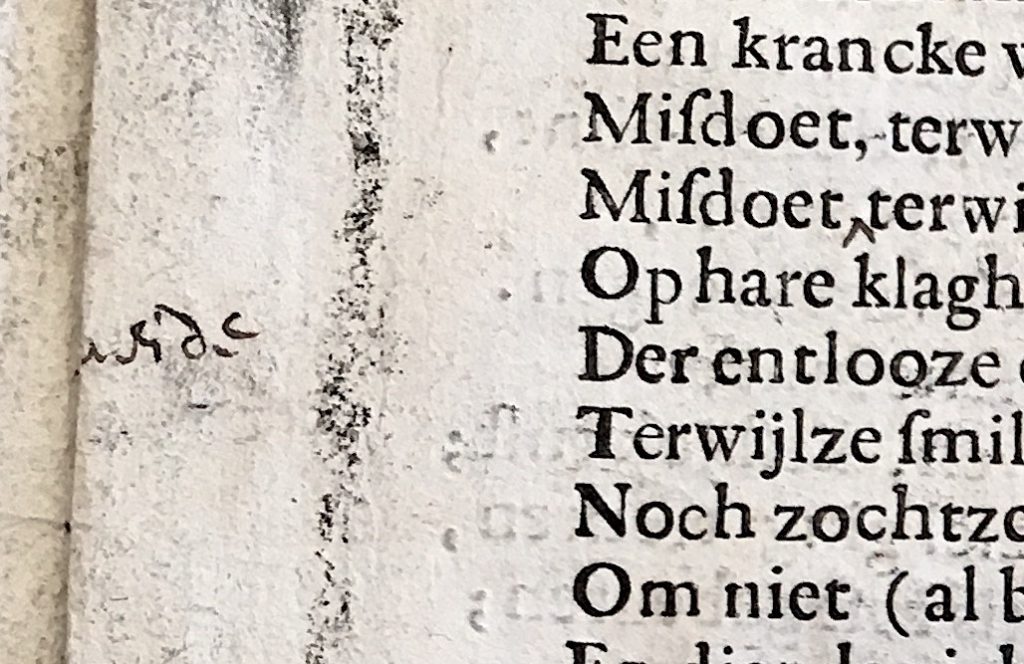 Een krancke
Miſdoet, terw
Miſdoet, terwi
Op hare klagh
Der entlooze
Terwijlze ſmil
Noch zochtz
Om niet (al b